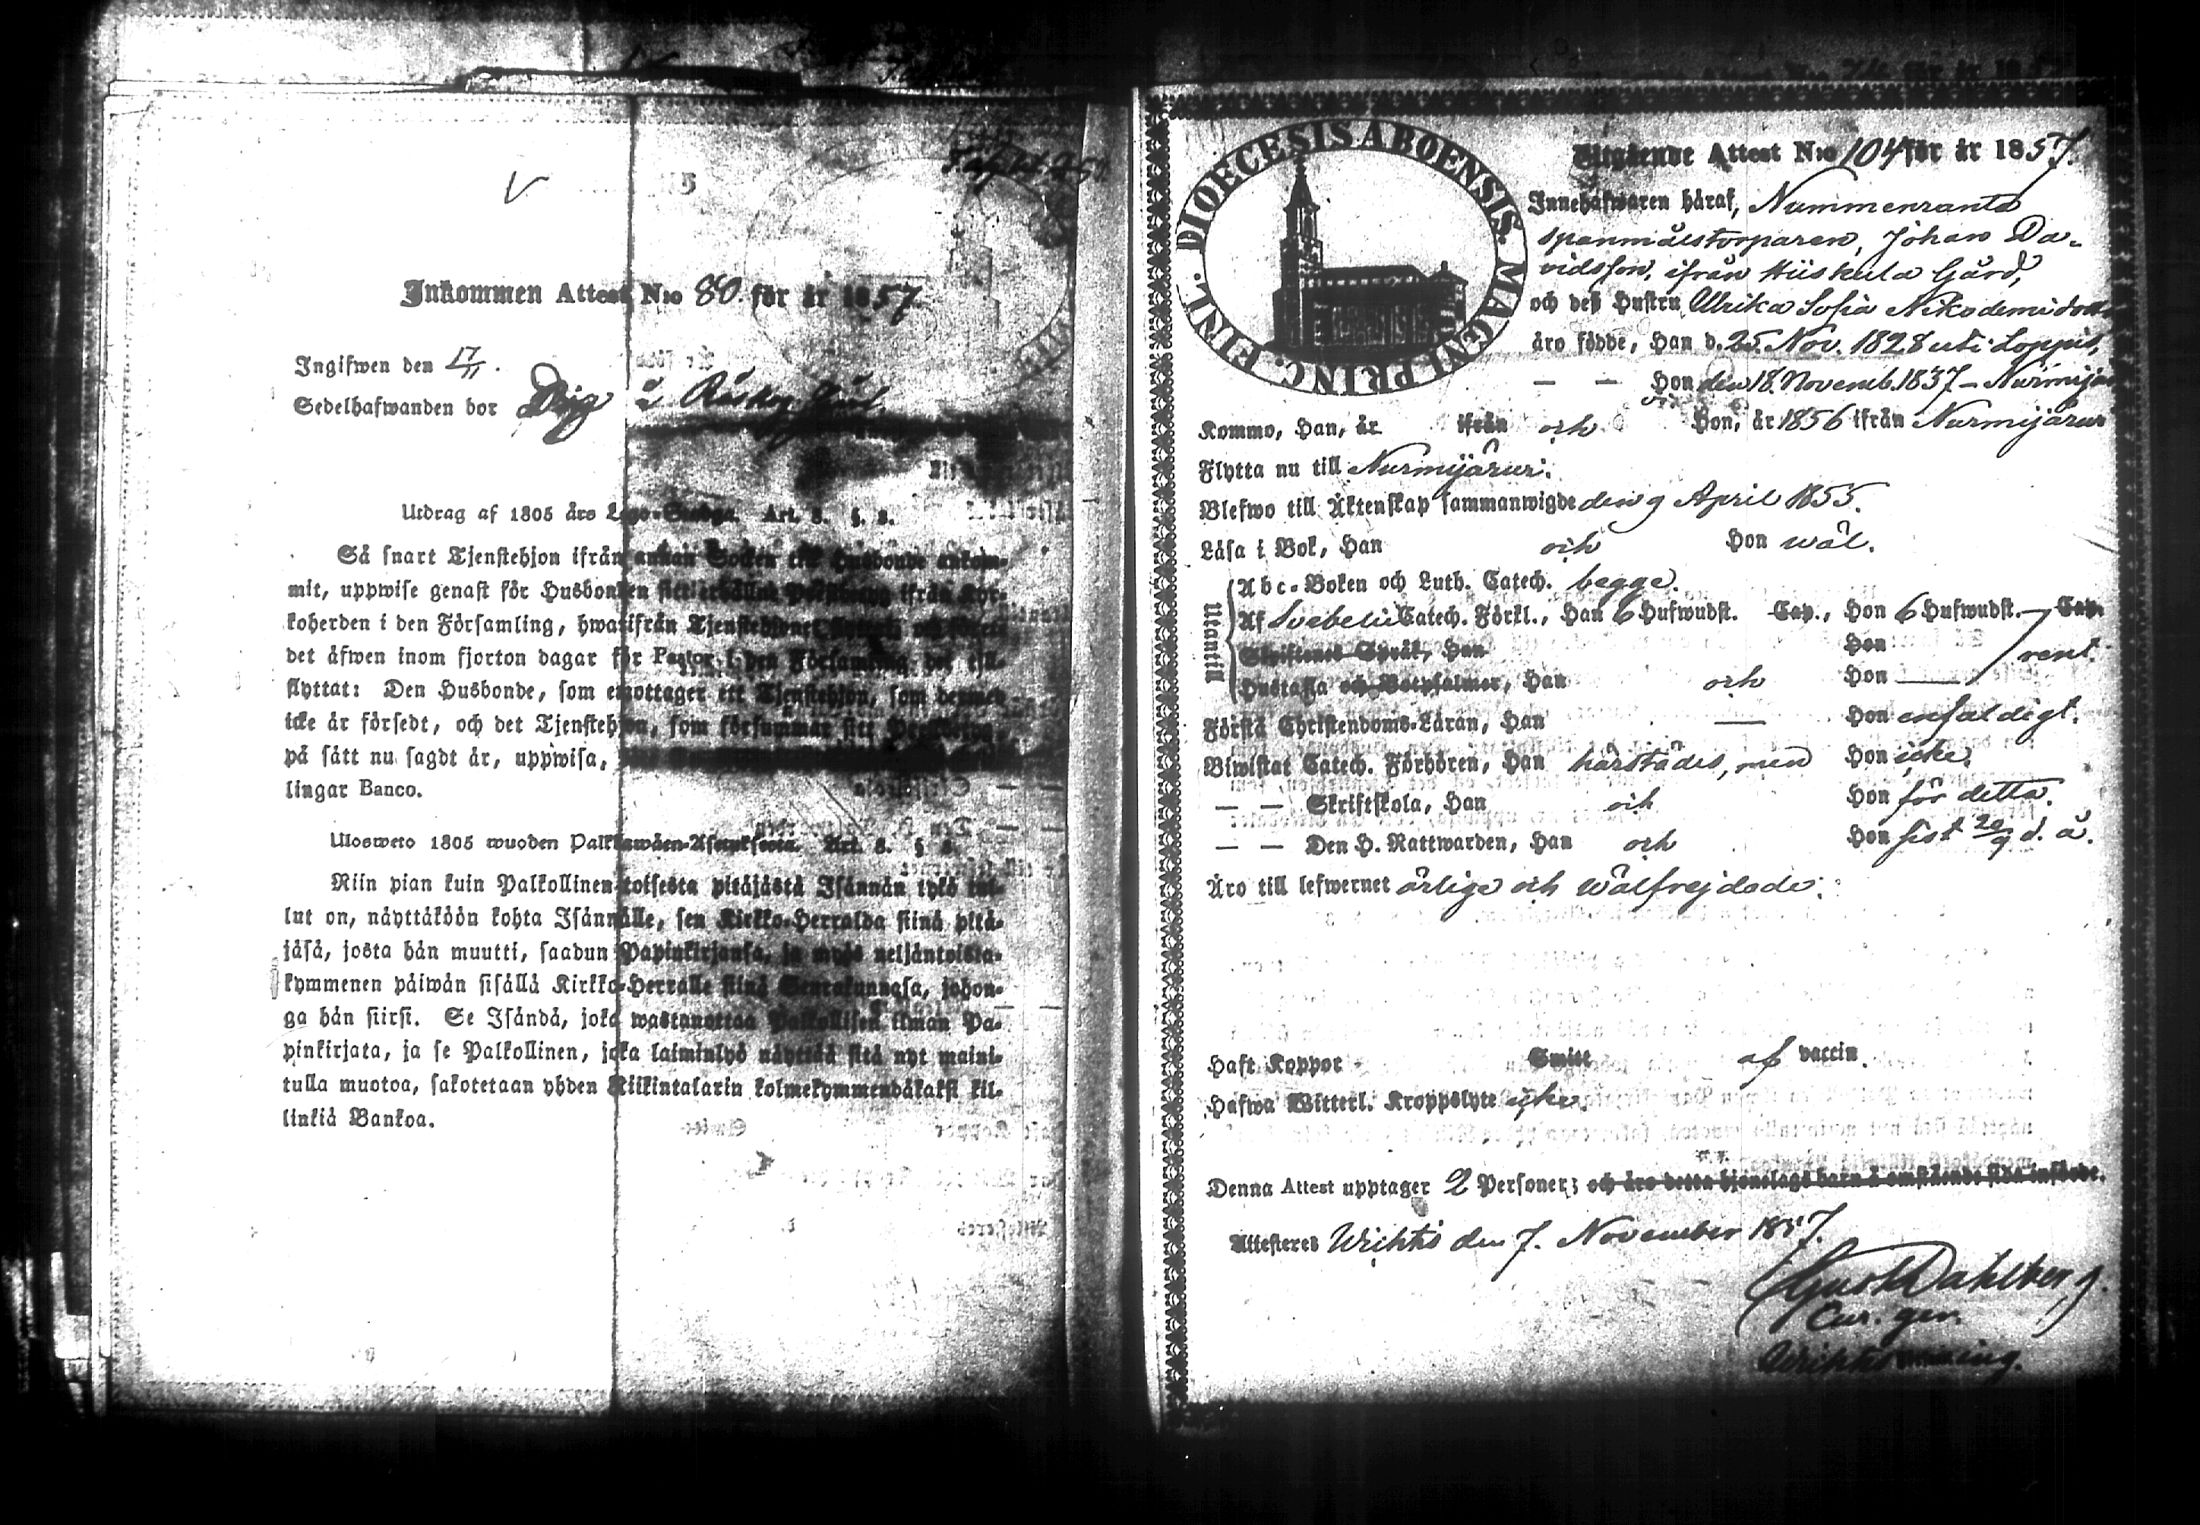 Inkommen Attest N:o 80 för år 1857.
Ingifwen den 17/11.
Sedelhafwanden bor
Utdrag af 1805 års Lego-Stadga. Art. 8. §. 8.
Så snart Tjenstehjon ifrån annan Socken till Husbonde ankom-
mit, uppwise genast för Husbonden sitt erhållna ifrån Kyr-
koherden i den Församling, hwarifrån Tjenstehjonet
det åfwen inom fjorton dagar för Pastor i den Församling, det till-
flyttat: Den Husbonde, som emottager ett Tjenstehjon, som dermed
icke är försedt, och det Tjenstehjon, som försummar sitt
på sätt nu sagdt är, uppwisa,
lingar Banco.
Ulosweto 1805 wuoden Palkkawäen-Asetuksesta. Art. 8. §. 8.
Niin pian kuin Palkollinen toisesta pitäjästä Isännän tykö tul-
lut on, näyttäköön kohta Isännälle, sen Kirkko-Herralda siinä pitä-
jäsä, josta hän muutti, saadun Papinkirjansa, ja myös neljäntoista-
kymmenen päiwän sisällä Kirkko-Herralle siinä Seurakunnasa, johon-
ga hän siirsi. Se Isändä, joka wastanottaa Palkollisen ilman Pa-
pinkirjata, ja se Palkollinen, joka laiminlyö näyttää sitä nyt maini-
tulla muotoa, sakotetaan yhden Riikintalarin kolmekymmendäkaksi kil-
linkiä Bankoa.
DIOECESIS ABOENSIS. MAGNI PRINC. FINL.
Utgående Attest N:o 104 för år 1857.
Innehafwaren häraf, Nummenranta
spanmålstorparen, Johan Da-
vidsson, ifrån Hiiskula Gård,
och deß Hustru Ulrika Sofia Nikodemidotter
äro födde, Han d. 25. Nov. 1828 uti Loppis,
— — Hon den 18. Novemb. 1837 – Nurmijärvi
Kommo, Han, år ifrån och Hon, år 1856 ifrån Nurmijärvi
Flytta nu till Nurmijärvi.
Blefwo till Äktenskap sammanwigde den 9 April 1855.
Läsa i Bok, Han och Hon wäl.
Utantill
Abc-Boken och Luth. Catech. begge.
Af Svebelii Catech. Förkl., Han 6 Hufwudst. Cap., Hon 6 Hufwudst. Cap.
Skriftenes Språk, Han Hon rent.
Hustafla och Botpsalmer, Han och Hon
Förstå Christendoms-Läran, Han — Hon enfaldigt.
Biwistat Catech. Förhören, Han härstädes, men Hon icke.
— — Skriftskola, Han och Hon för detta.
— — Den H. Nattwarden, Han och Hon sist 20/9 d. å.
Äro till lefwernet ärlige och wälfrejdade.
Haft Koppor Smitt af vaccin.
Hafwa Witterl. Kroppslyte icke.
Denna Attest upptager 2 Personer; och äro detta hjonelags barn å omstående sida införde.
Attesteres Wichtis den 7. November 1857.
Gust Dahlberg.
Cur. ger.